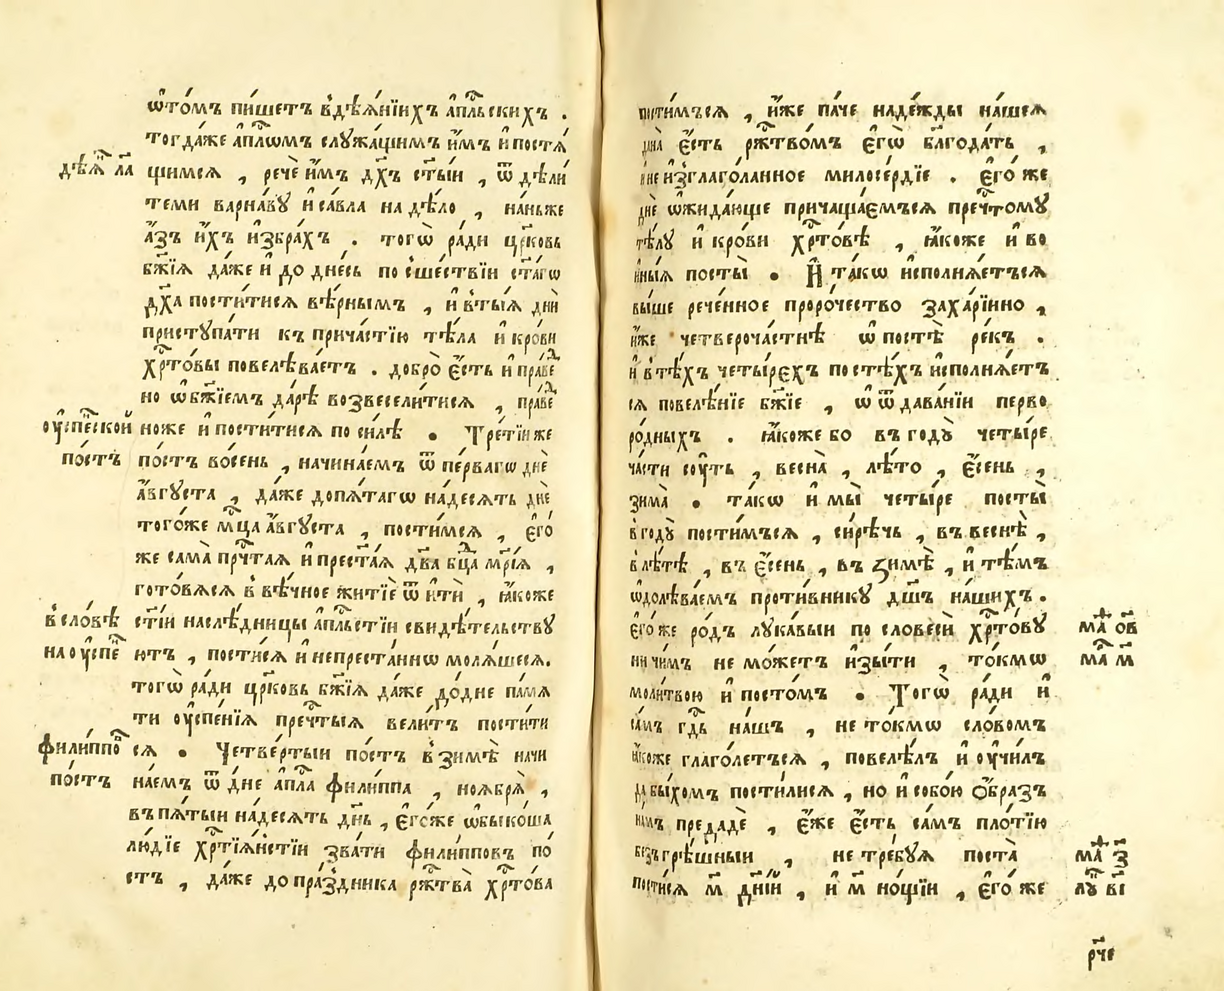 ѡ҆то́мъ пи́шетъ вдѣѧ́нїихъ а҆пⷭ҇льскихъ .
тогда́же а҆пⷭ҇лѡмъ слꙋжа́щимъ и҆̀мъ и҆ постѧ́
дѣѧ҃ⷩ ла҃
щимсѧ , речѐ и҆̀мъ дх҃ъ ст҃ы́и , ѿ дѣли́
теми варна́вꙋ и҆ са́вла на дѣ́ло , на́ньже
а҆́зъ и҆́хъ и҆збра́хъ . тогѡ̀ ра́ди цр҃ковь
бж҃їѧ да́же и҆ до дне́сь по сше́ствїи ст҃а́гѡ
дх҃а пости́тисѧ вѣ́рнымъ , и҆ втыѧ̀ днѝ
пристꙋпа́ти къ прича́стїю тѣ́ла и҆ кро́ви
хрⷭ҇то́вы повелѣва́етъ . добро̀ є҆́сть и҆ пра́веⷣ
но ѡ҆ бж҃їемъ да́рѣ возвесели́тисѧ , пра́веⷣ
ᲂу҆спе́нской
ноже и҆ пости́тисѧ по си́лѣ • Тре́тїи же
по́стъ
по́стъ во́сень , начина́емъ ѿ пе́рвагѡ днѐ
а҆́вгꙋста , да́же допѧ́тагѡ на́десѧть днѐ
того́же мⷭ҇ца а҆́вгꙋста , пости́мсѧ , є҆го́
же сама̀ прⷱ҇таѧ и҆ прест҃а́ѧ дв҃а бцⷣа мр҃і́ѧ ,
гото́вѧсѧ в вѣ́чное житїѐ ѿ итѝ , ꙗ҆́коже
в сло́вѣ
ст҃і́и наслѣ́дницы а҆пⷭ҇льстїи свидѣ́тельствꙋ
на ᲂу҆спе́ⷩ
ютъ , постѧ́сѧ и҆ непреста́ннѡ молѧ́шесѧ.
тогѡ̀ ра́ди цр҃ковь бж҃їѧ да́же до́дне па́мѧ
ти ᲂу҆спе́нїѧ пречⷭ҇тыѧ вели́тъ пости́ти
фили́ппоⷡ
сѧ • Четве́ртыи по́стъ в зимѣ̀ начи
по́стъ
на́емъ ѿ дне а҆пⷭ҇ла фили́ппа , ноѧ́брѧ̀ ,
въ пѧ́тыи на́десѧть дн҃ь , є҆го́же ѡ҆быко́ша
лю́дїе хрⷭ҇тїѧ́нстїи зва́ти фили́пповъ по́
стъ , да́же до пра́здника рⷤ҇тва̀ хрⷭ҇то́ва
пости́мъсѧ , и҆́же па́че наде́жды на́шеѧ
дана̀ є҆́сть рⷤ҇тво́мъ є҆гѡ̀ бл҃года́ть ,
и неи҆зглаго́ланное милосе́рдїе . є҆го́ же
днѐ ѡ҆жида́юще причаща́емъсѧ пречⷭ҇тому
тѣ́лꙋ и҆ кро́ви хрⷭ҇то́вѣ , ꙗ҆́коже и҆ во
и҆ны́ѧ посты̀ • И҆ та́кѡ и҆сполнѧ́етъсѧ
вы́ше рече́нное проро́чество заха́рїино ,
и҆́же четверочастнѣ̀ ѡ҆ постѣ̀ ре́къ .
и҆ втѣ́хъ четы́рехъ посте́хъ и҆сполнѧ́етъ
сѧ повелѣ́нїе бж҃їе , ѡ҆ ѿдава́нїи перво
ро́дныхъ . ꙗ҆́коже бо въ годꙋ̀ четы́ре
ча́сти сꙋ́ть , весна̀ , лѣ́то , є҆́сень ,
зима̀ • та́кѡ и҆ мы̀ четы́ре посты̀
в годꙋ̀ пости́мъсѧ , си́рѣчь , въ веснѣ̀ ,
в лѣ́тѣ , въ є҆́сень , въ зимѣ̀ , и҆ тѣ́мъ
ѡ҆долѣва́емъ проти́вникꙋ дш҃ъ на́шихъ .
є҆го́же ро́дъ лꙋка́выи по словесѝ хрⷭ҇то́вꙋ
маⷴ҇ ѻ҃в
ничи́мъ не мо́жетъ и҆зы́ти , то́кмѡ
маⷬ҇ м҃
моли́твою и҆ посто́мъ • Тогѡ̀ ра́ди и҆
са́мъ гдⷭ҇ь на́шъ , не то́кмѡ сло́вомъ
ꙗ҆́коже глаго́летъсѧ , повелѣ́лъ и҆ ᲂу҆чи́лъ
да бы́хомъ пости́лисѧ , но и҆ собо́ю ѻ҆́бразъ
на́мъ предадѐ , є҆́же є҆́сть са́мъ пло́тїю
безъгрѣ́шныи , не тре́бꙋѧ поста̀
маⷴ҇ з҃
пости́сѧ м҃ дні́й , и҆ м҃ но́щїи , є҆го́ же
лꙋⷦ҇ в҃і
рч҃е